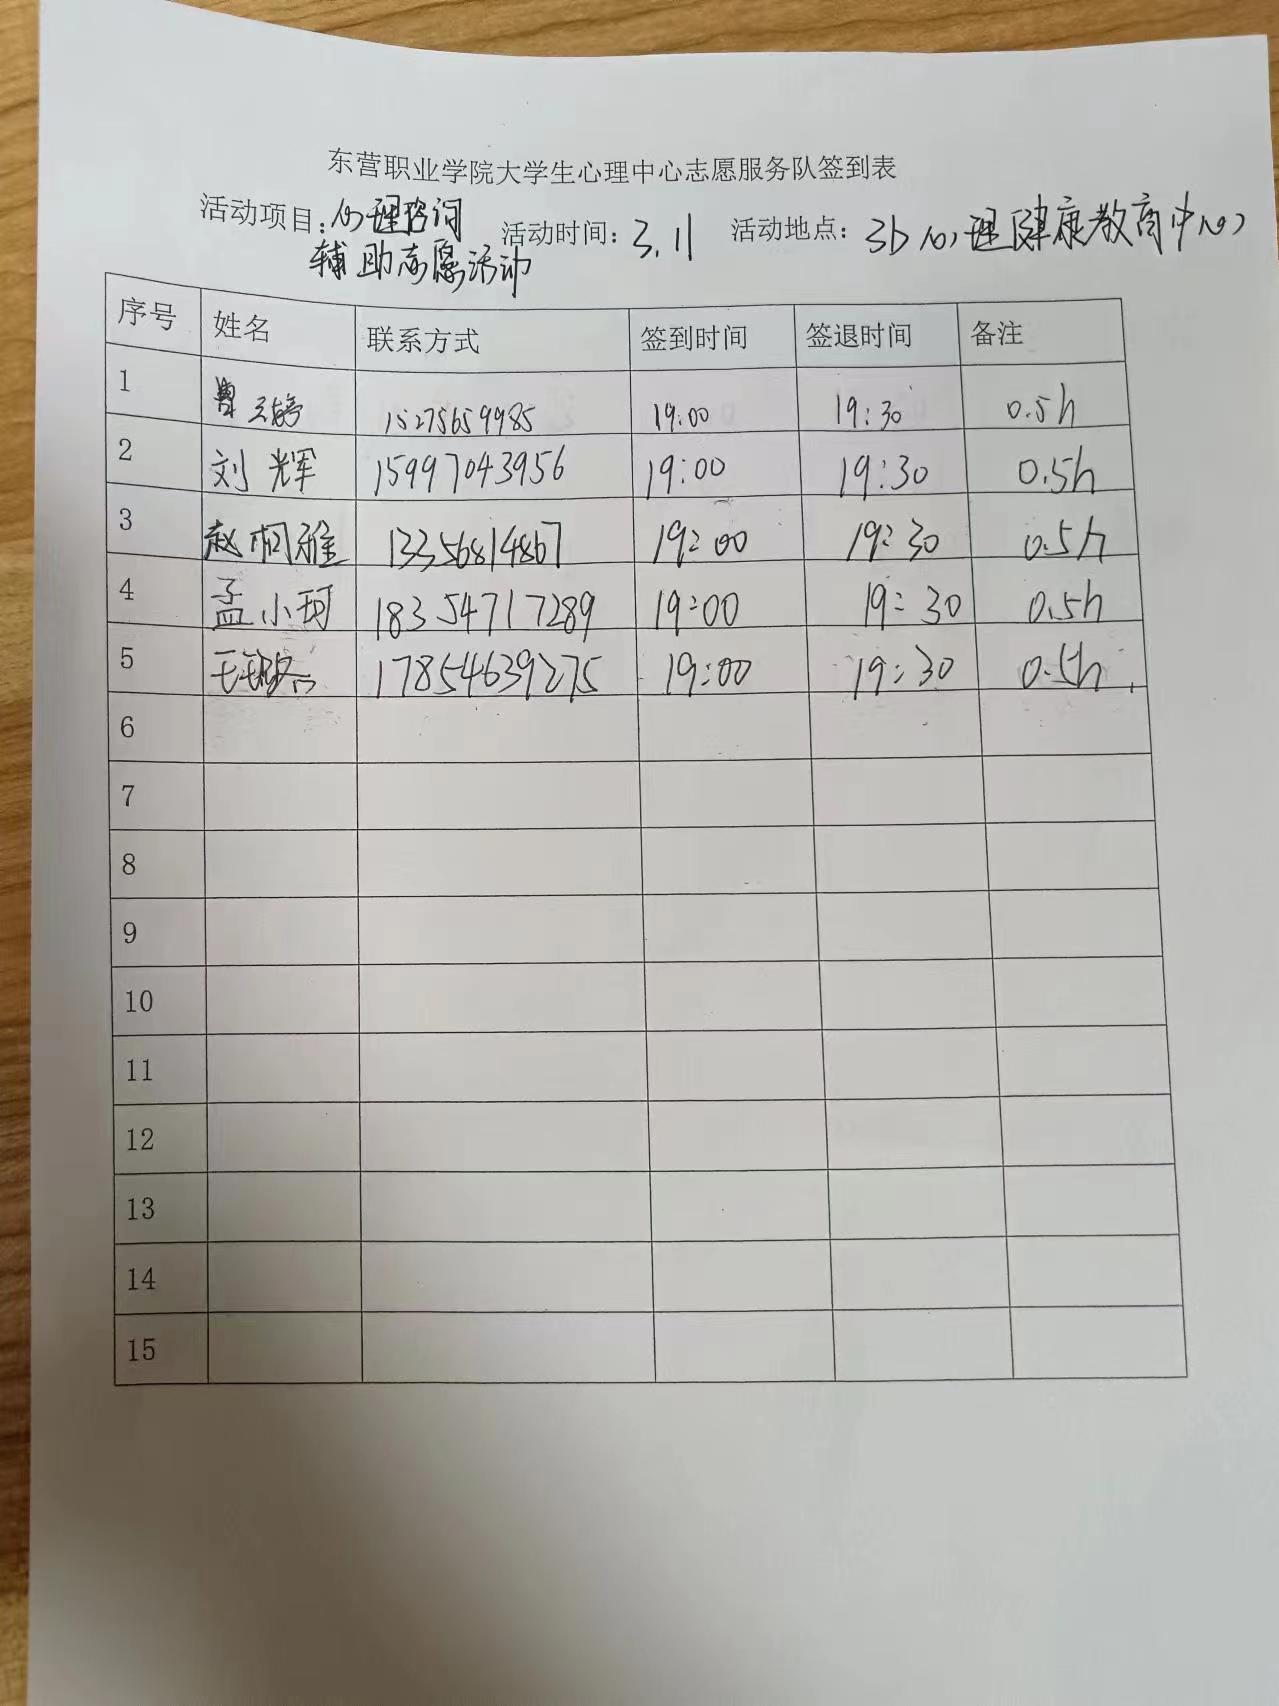 东营职业学院大学生心理中心志愿服务队签到表
活动项目：心理咨询 活动时间：3.11 活动地点：3b心理健康教育中心
辅助志愿活动
序号 姓名 联系方式 签到时间 签退时间 备注
1 曹 15275659985 19:00 19:30 0.5h
2 刘辉 15997043956 19:00 19:30 0.5h
3 赵桐雅 13356814867 19:00 19:30 0.5h
4 孟小珂 18354717289 19:00 19:30 0.5h
5 17854639275 19:00 19:30 0.5h
6
7
8
9
10
11
12
13
14
15